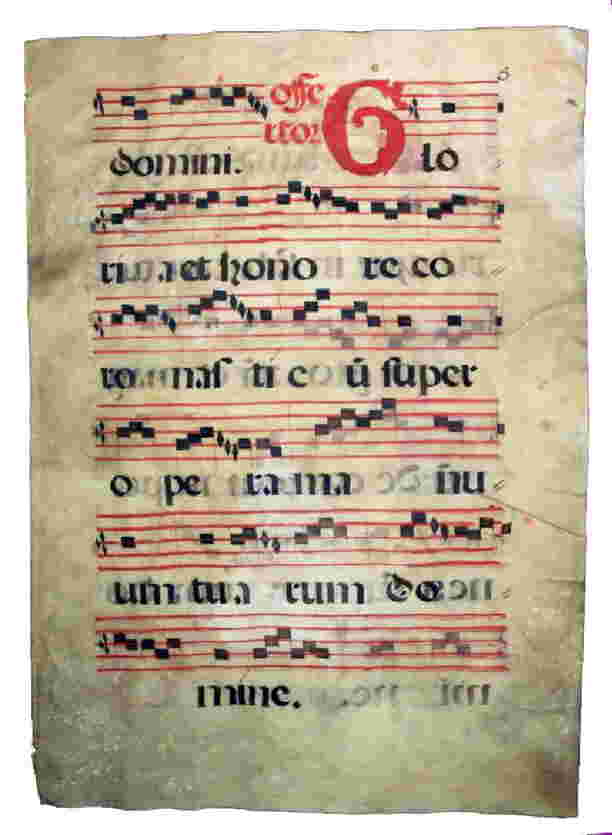 offe
rtor
domini. Glo
ria et hono re co
ro nas ti e ū super
o pe ra ma nu
um tu a rum do
mine.